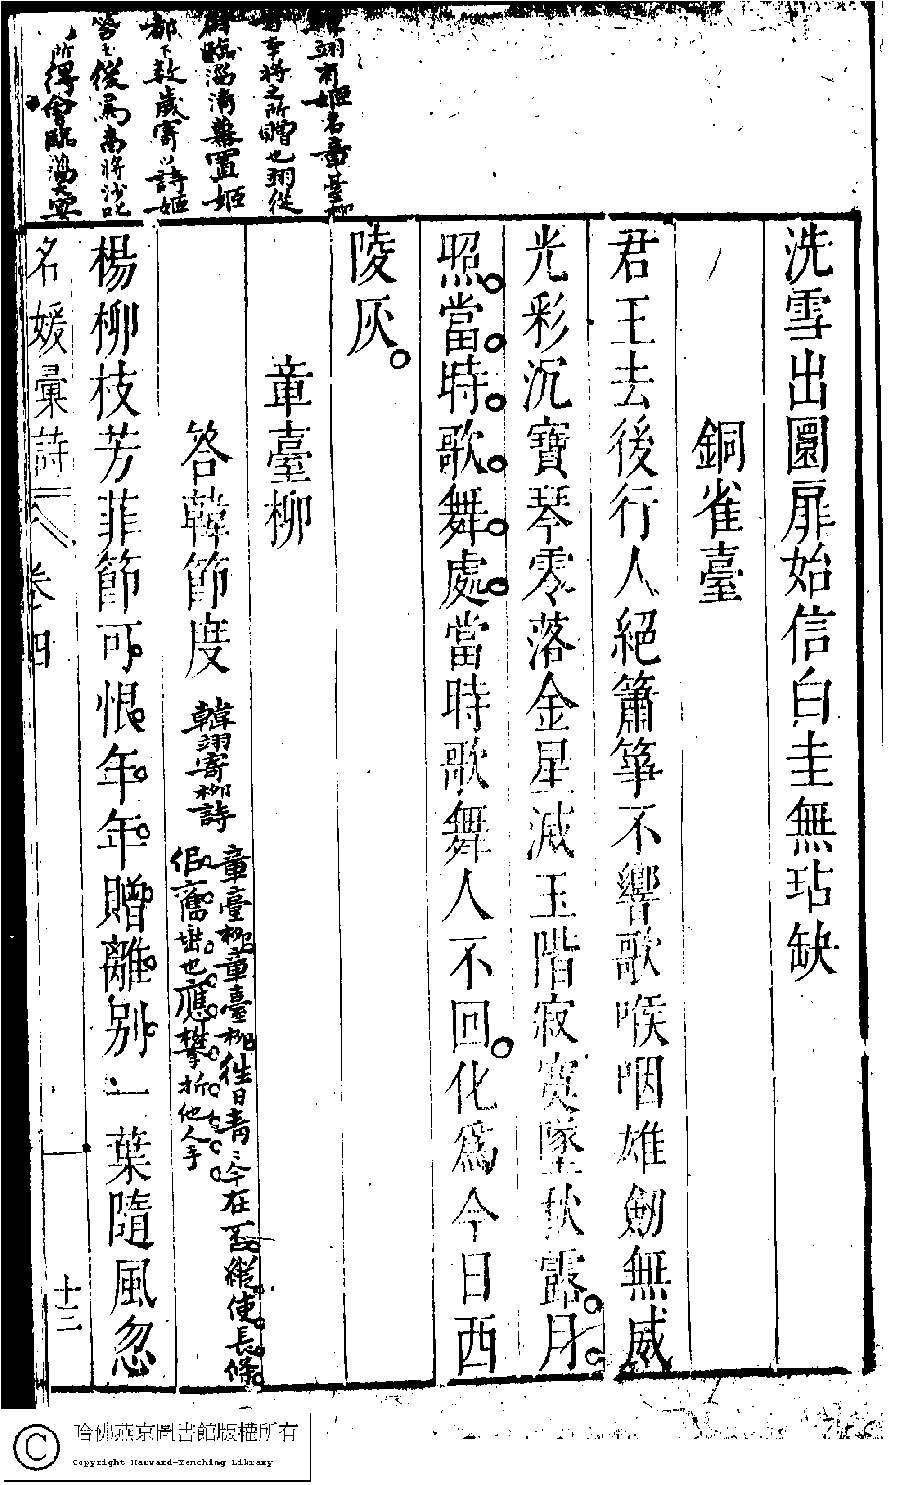 洗雪出圜扉始信白圭無玷缺
銅雀臺
君王去後行人絕簫筝不響歌喉咽雄劒無威
光彩沉寶琴零落金星滅玉階寂寞墜秋露月
照當時歌舞處當時歌舞人不回化為今日西
陵灰
章臺柳
答韓節度
韓翃寄柳詩
章臺柳章臺柳徃日青〻今在否縱使長條
似舊垂也應攀折他人手
楊柳枝芳菲節可恨年年贈離別一葉隨風忽
名媛彙詩
卷四
十三
翃有姬名章臺柳
李將之所贈也翃從
臨淄清幕置姬
都下數歲寄以詩姬
答之後為畨將沙吒
所得會臨淄
哈佛燕京圖書館版權所有
Copyright Harvard-Yenching Library